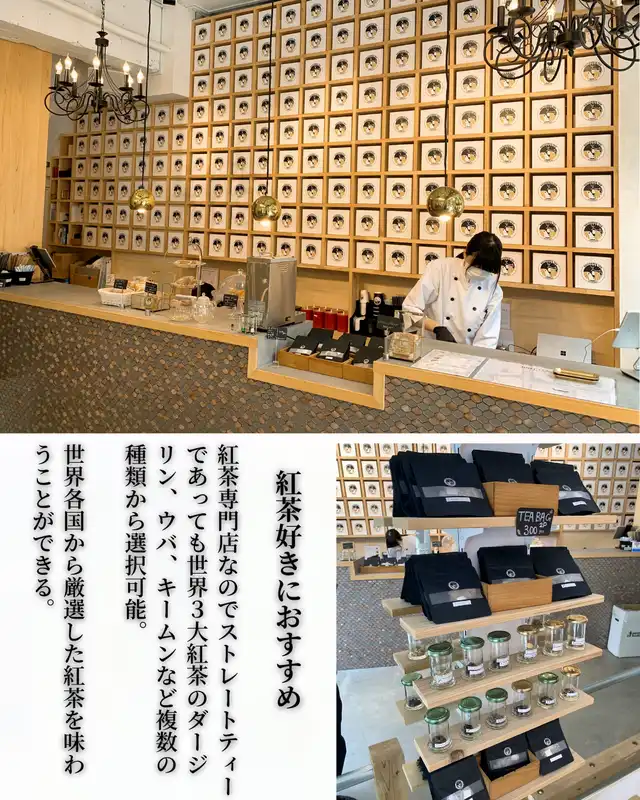 紅茶好きにおすすめ
紅茶専門店なのでストレートティー
であっても世界３大紅茶のダージ
リン、ウバ、キームンなど複数の
種類から選択可能。
世界各国から厳選した紅茶を味わ
うことができる。
TEA BAG
300